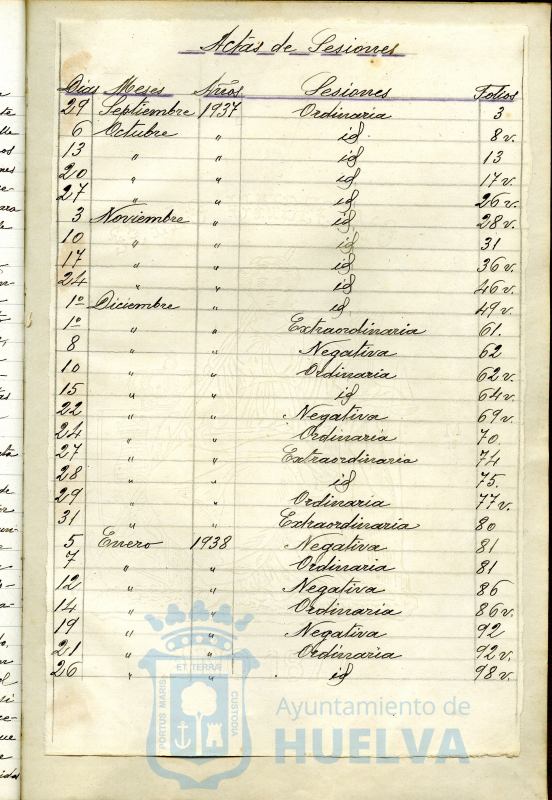 Actas de Sesiones
Dias Meses Años Sesiones Folios
29 Septiembre 1937 Ordinaria 3
6 Octubre " id. 8 v.
13 " " id 13
20 " " id 17 v.
27 " " id 26 v.
3 Noviembre " id 28 v.
10 " " id 31
17 " " id 36 v.
24 " " id 46 v.
1º Diciembre " id 49 v.
1º " " Extraordinaria 61.
8 " " Negativa 62
10 " " Ordinaria 62 v.
15 " " id 64 v.
22 " " Negativa 69 v.
24 " " Ordinaria 70
27 " " Extraordinaria 74
28 " " id 75.
29 " " Ordinaria 77 v.
31 " " Extraordinaria 80
5 Enero 1938 Negativa 81
7 " " Ordinaria 81
12 " " Negativa 86
14 " " Ordinaria 86 v.
19 " " Negativa 92
21 " " Ordinaria 92 v.
26 " " id 98 v.
PORTUS MARIS ET TERRAE CUSTODIA
Ayuntamiento de
HUELVA